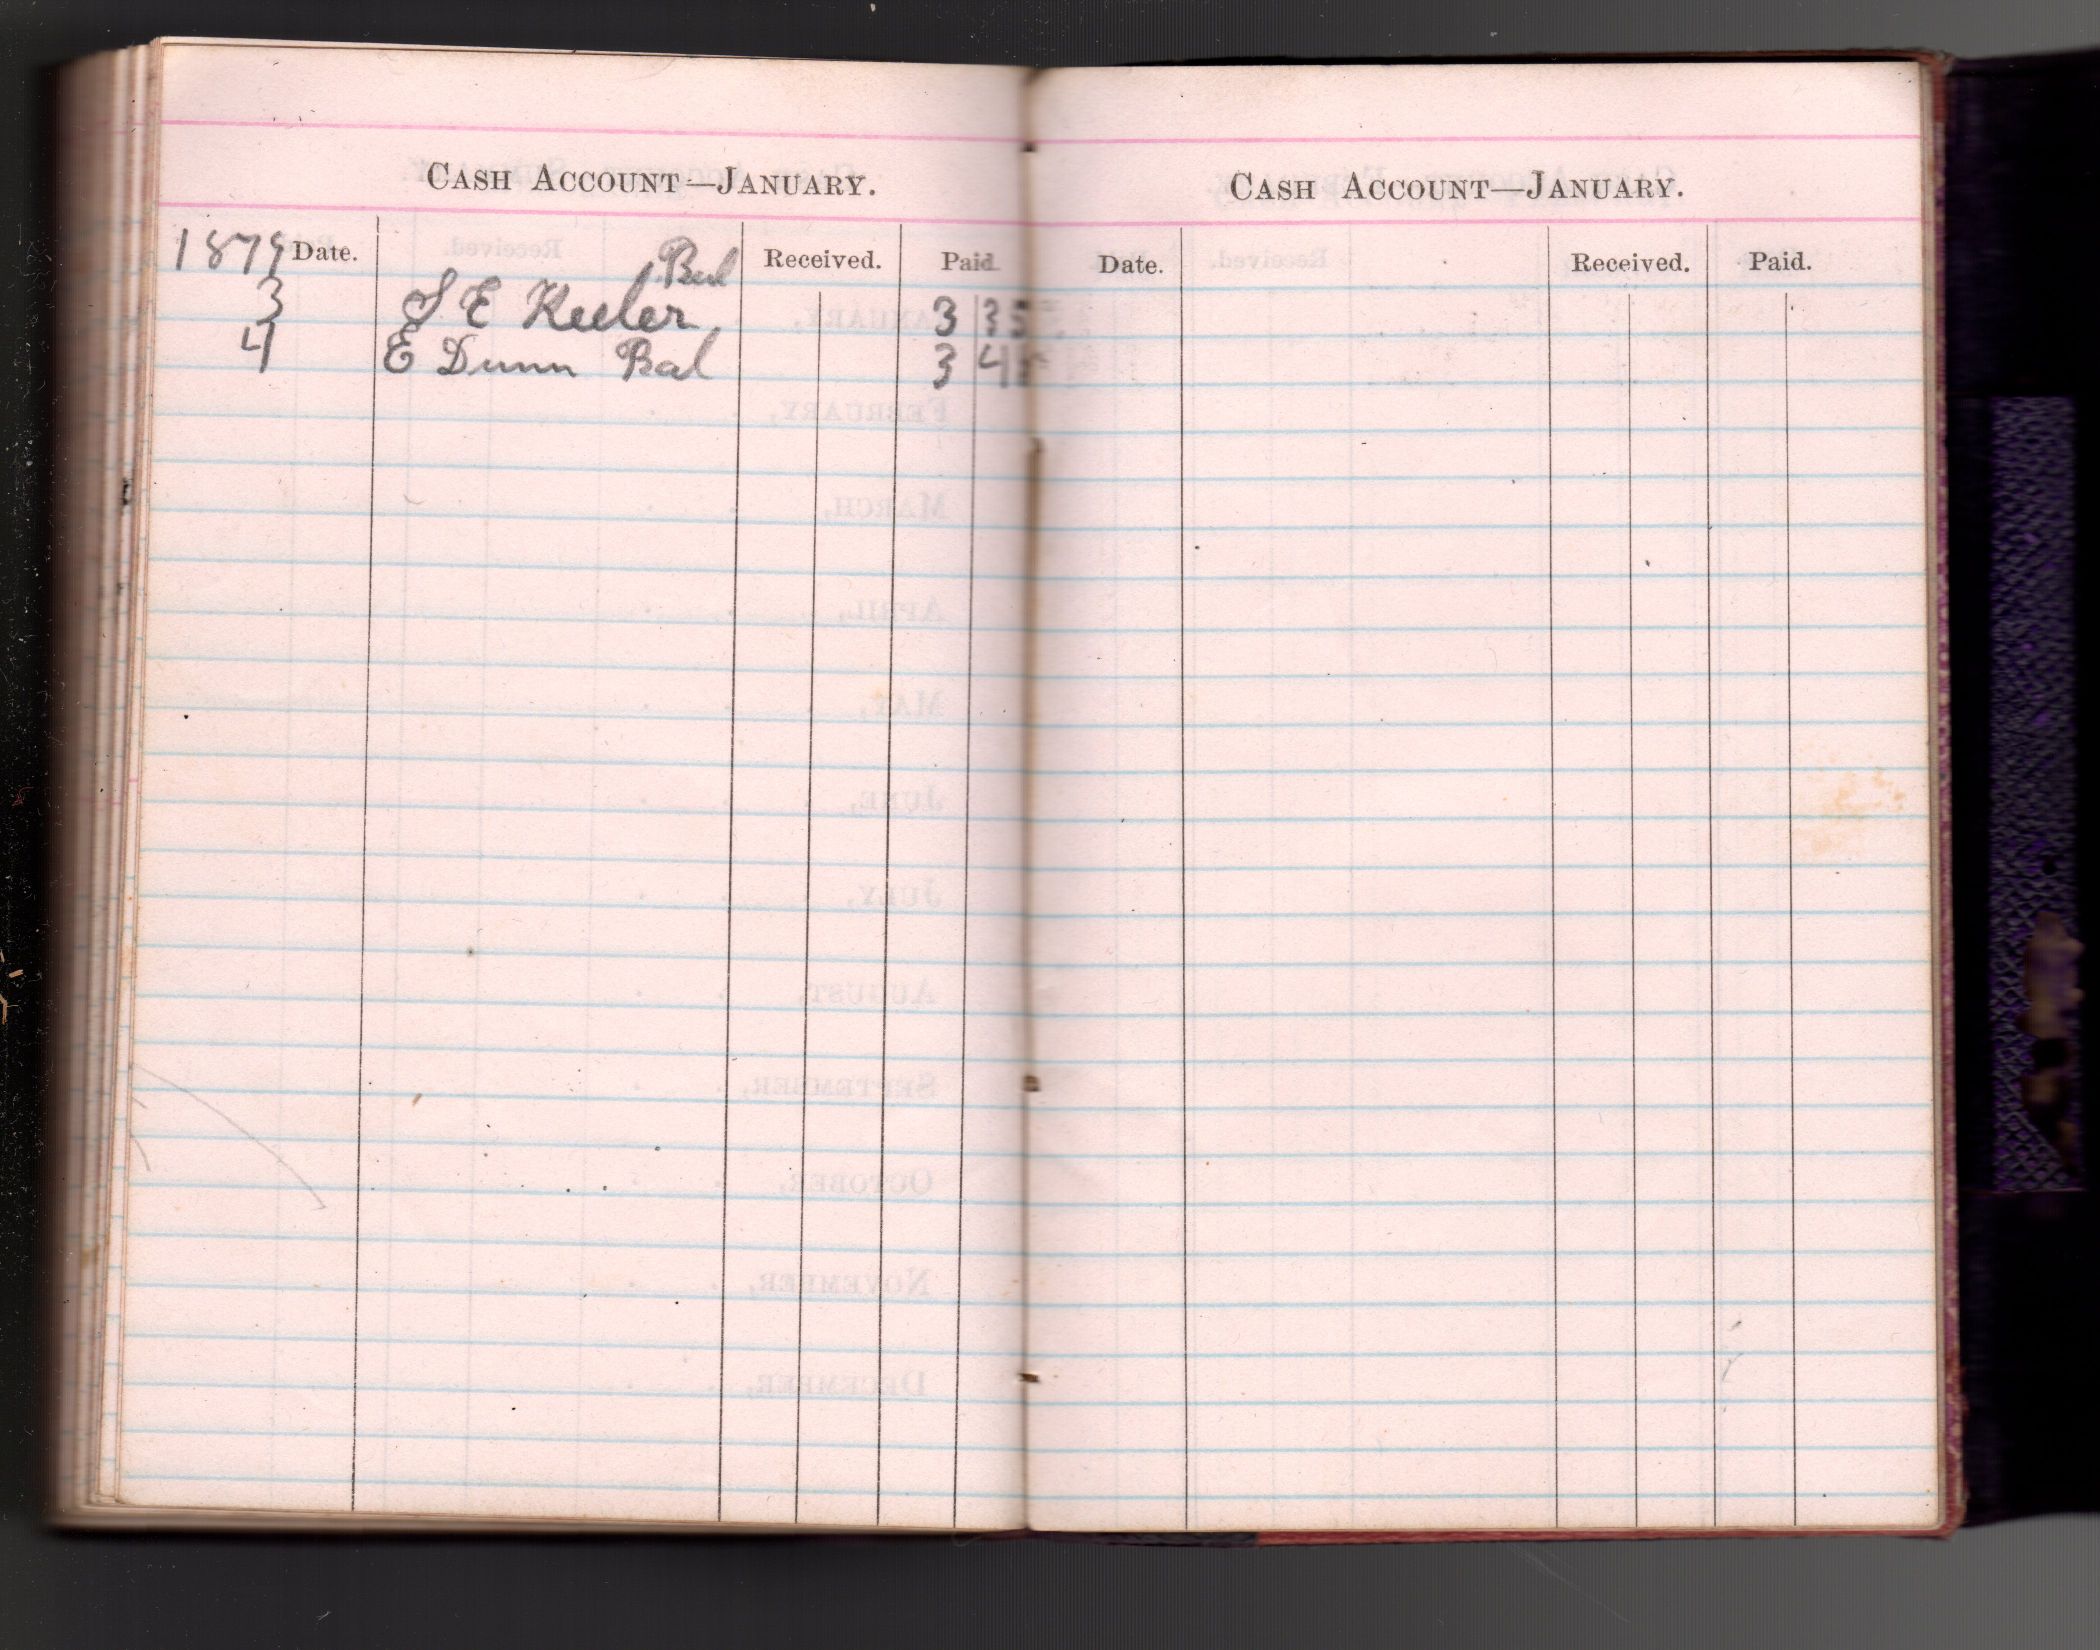 CASH ACCOUNT—JANUARY.
1879 Date. Received. Paid.
3 S E Keeler Bal 3 35
4 E Dunn Bal 3
CASH ACCOUNT—JANUARY.
Date. Received. Paid.